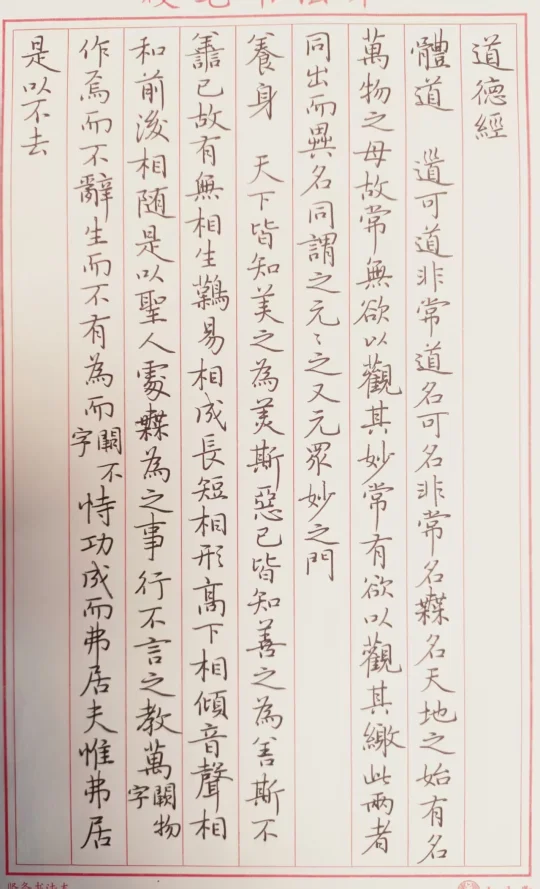 道德經
體道　道可道非常道名可名非常名橆名天地之始有名
萬物之母故常無欲以觀其妙常有欲以觀其繳此兩者
同出而異名同謂之元〻之又元眾妙之門
養身　天下皆知美之為美斯惡已皆知善之為善斯不
譱已故有無相生難易相成長短相形高下相傾音聲相
和前後相随是以聖人處橆為之事行不言之教萬闕字物
作焉而不辭生而不有為而闕字不恃功成而弗居夫惟弗居
是以不去